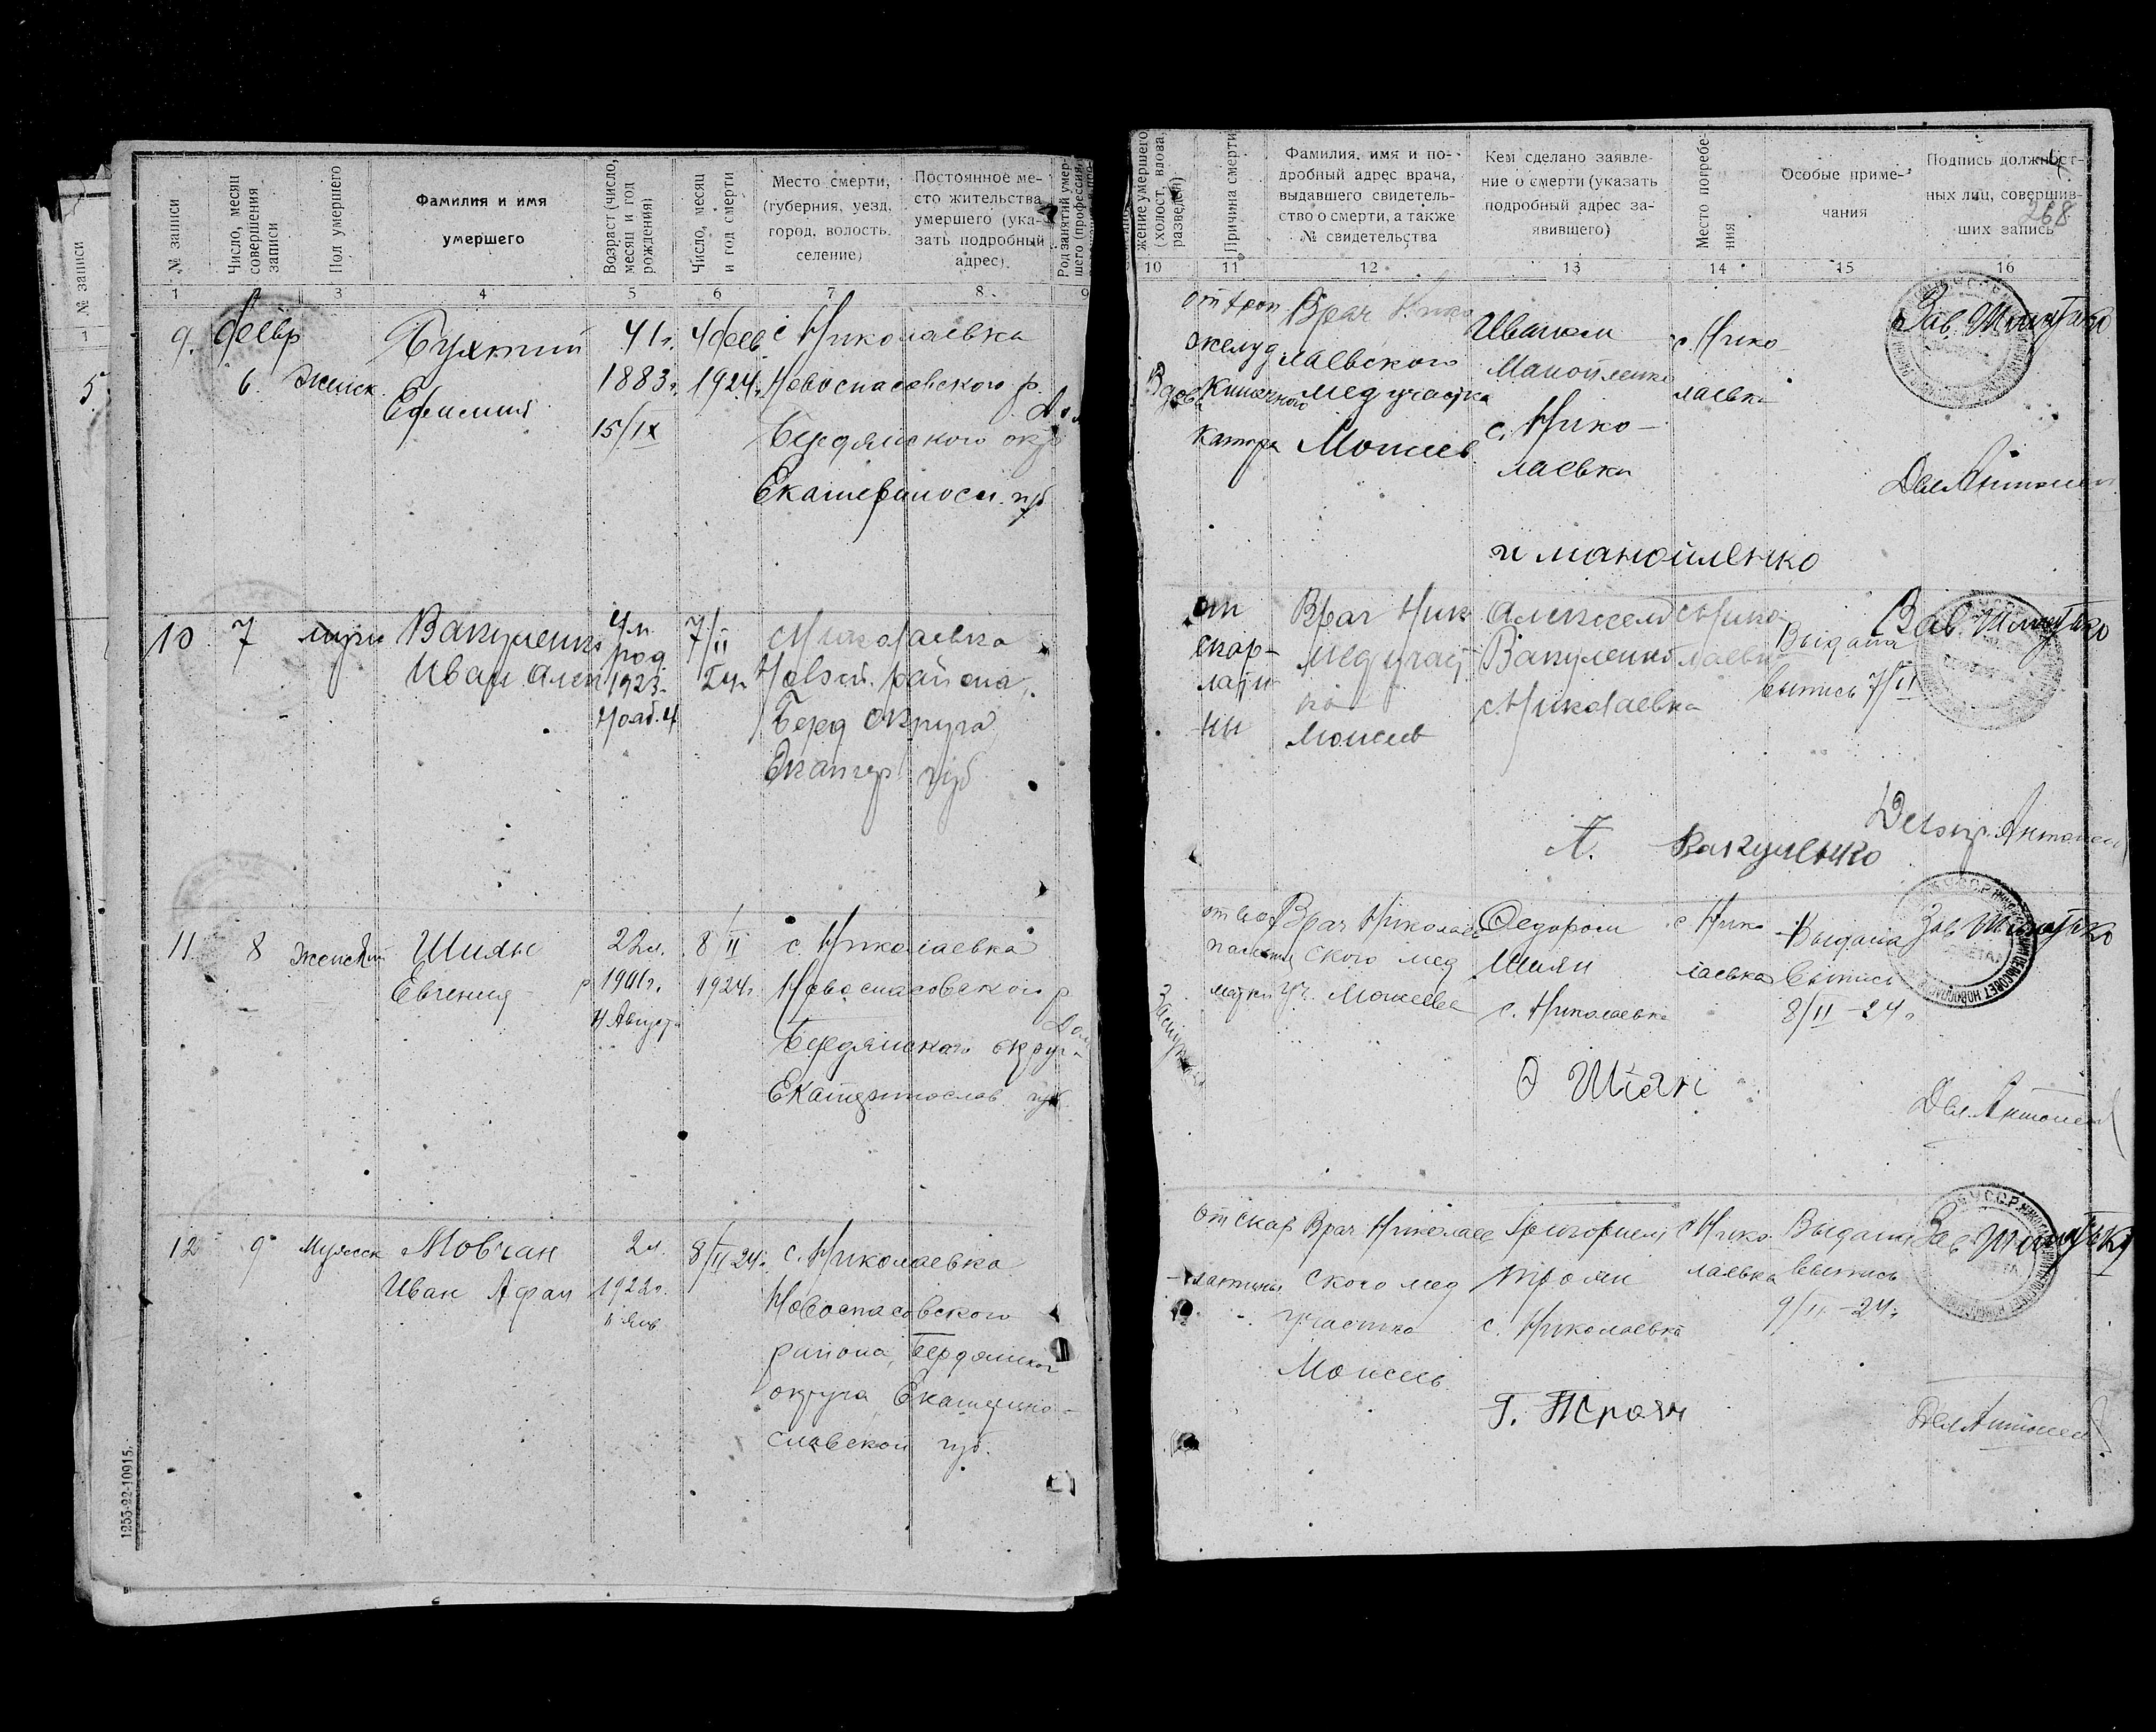 № записи
Число, месяц совершения записи
Пол умершего
Фамилия и имя умершего
Возраст (число, месяц и год рождения)
Число, месяц и год смерти
Место смерти, (губерния, уезд, город, волость, селение)
Постоянное место жительства умершего (указать подробный адрес)
1 3 4 5 6 7 8 9
9. февр Бухтий 41 г. 4 фев с Николаевка
6. женск. 1883 г. 1924 г. Новоспасовского р.
Ефимия
15/IX Бердянского окр
Екатериносл. губ
10 7 муж Вакуленко 4 м. 7/II с Николаевка
Иван Алек род. 1923 24 г. района
Нояб. 4 Берд округа
Екатер губ
11. 8 женский Шиян 22 л. 8/II с. Николаевка
Евгения р 1901 г. 1924 г. Новоспасовского р
4 Августа
Бердянского округ
Екатеринослав губ.
12 9 Мужеск Мовчан 2 л. 8/II 24 г. с. Николаевка
Иван Афан 1922 г. Новоспасовского
11 Янв
района, Бердянског
округа Екатерино-
славской губ.
1253-22-10915.
№ записи
1
5.
жение умершего (холост, вдова, разведен)
Причина смерти
Фамилия, имя и подробный адрес врача, выдавшего свидетельство о смерти, а также № свидетельства
Кем сделано заявление о смерти (указать подробный адрес заявившего)
Место погребения
Особые примечания
Подпись должностных лиц, совершивших запись
268
10 11 12 13 14 15 16
от хрон Врач Нико Иваном с. Нико Зав.
желуд лаевского Манойленко лаевка
Вдова кишечного мед участка с. Нико-
катара Моисеев лаевка
Дел Антонен
и манойленко
от Врач Ник Алексеем с Нико Выдана Зав.
скар- мед участ Вакуленко лаевка выпись 7/II
лати- ка с Николаевка
ны Моисеев
А. Вакуленко
Делопр. Антонен
Врач Николаев Федором с. Нико Выдана Зав.
ского мед Шиян лаевка выпись
матки уч. Моисеев с. Николаевка 8/II-24 г.
Ф Шиян
Дел. Антонен
от скар Врач Николаев Григорием с Нико Выдана Зав
латины ского мед Троян лаевка выпись
участка с. Николаевка 9/II-24 г.
Моисеев
Г. Троян
Дел Антонен